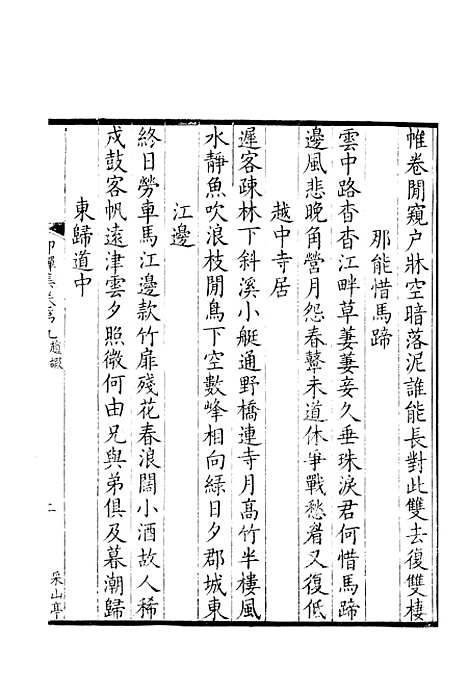 帷卷閒窺户牀空暗落泥誰能長對此雙去復雙棲
那能惜馬蹄
雲中路杳杳江畔草萋萋妾久垂珠淚君何惜馬蹄
邊風悲晚角營月怨春鼙未道休爭戰愁眉又復低
越中寺居
遲客疎林下斜溪小艇通野橋連寺月髙竹半樓風
水靜魚吹浪枝閒鳥下空數峰相向緑日夕郡城東
江邊
終日勞車馬江邊款竹扉殘花春浪闊小酒故人稀
戍鼓客帆遠津雲夕照微何由兄與弟俱及暮潮歸
東歸道中
采山亭